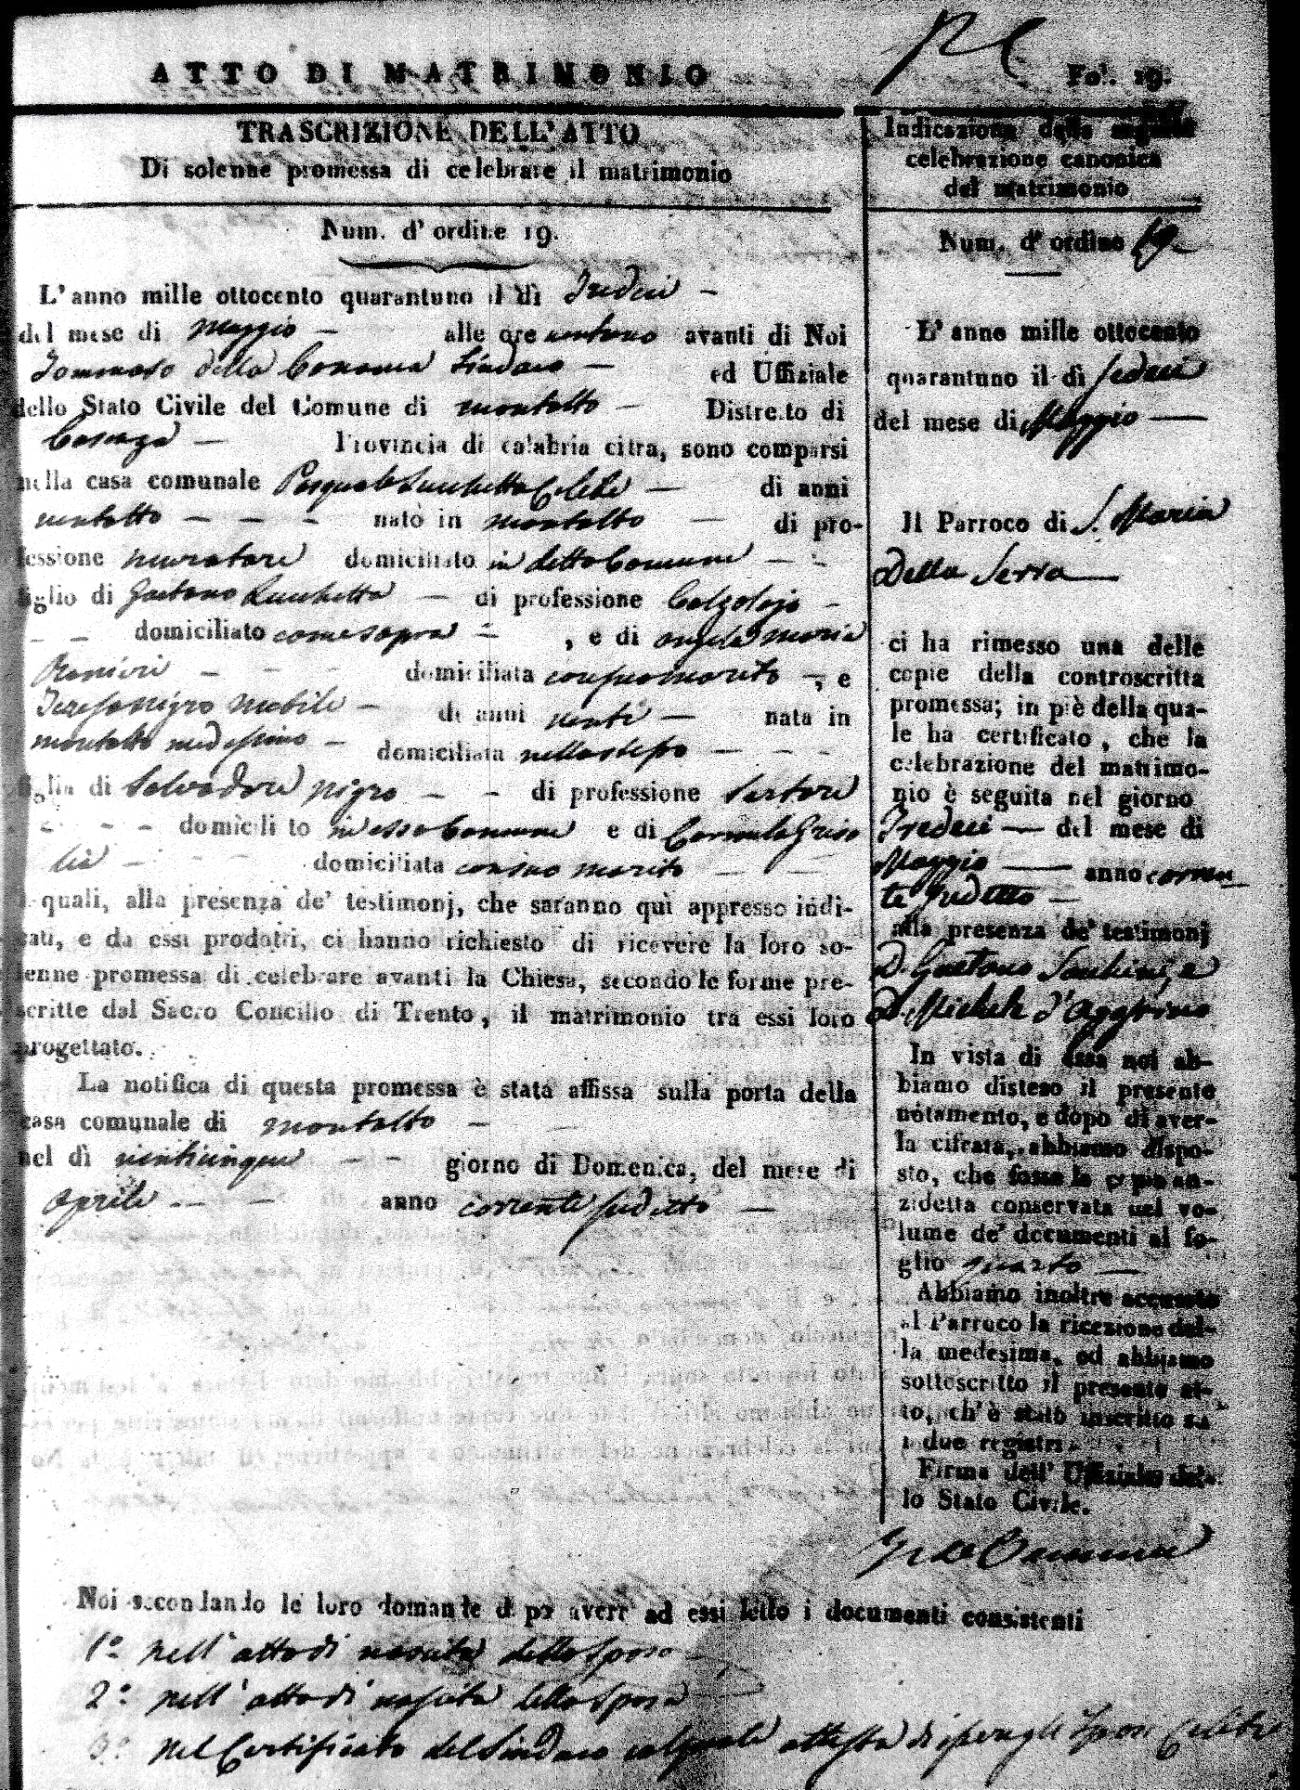 ATTO DI MATRIMONIO
Fol. 19.
TRASCRIZIONE DELL'ATTO
Di solenne promessa di celebrare il matrimonio
Num. d'ordine 19.
L'anno mille ottocento quarantuno il dì Tredeci
del mese di Maggio alle ore ventuno avanti di Noi
Tommaso della Sindaco ed Uffiziale
dello Stato Civile del Comune di Montalto Distretto di
Cosenza Provincia di calabria citra, sono comparsi
nella casa comunale Pasquale Lucchetta Celibe di anni
ventotto nato in Montalto di pro-
fessione muratore domiciliato in detto Comune
figlio di Gaetano Lucchetta di professione Calzolajo
domiciliato come sopra , e di Angela Maria
Ranieri domiciliata con suo marito , e
Teresa Nigro Nubile di anni venti nata in
Montalto medesimo domiciliata nello stesso
figlia di Salvadore Nigro di professione Sartore
domicilito in esso Comune e di Carmela Griso
lia domiciliata con suo marito
i quali, alla presenza de' testimonj, che saranno quì appresso indi-
cati, e da essi prodotti, ci hanno richiesto di ricevere la loro so-
lenne promessa di celebrare avanti la Chiesa, secondo le forme pre-
scritte dal Sacro Concilio di Trento, il matrimonio tra essi loro
progettato.
La notifica di questa promessa è stata affissa sulla porta della
casa comunale di Montalto
nel dì venticinque giorno di Domenica, del mese di
Aprile anno corrente sudetto
Indicazione della seguita
celebrazione canonica
del matrimonio
Num. d'ordine 19
L'anno mille ottocento
quarantuno il dì sedeci
del mese di Maggio
Il Parroco di S. Maria
Della Serra
ci ha rimesso una delle
copie della controscritta
promessa; in piè della qua-
le ha certificato, che la
celebrazione del matrimo-
nio è seguita nel giorno
Tredeci del mese di
Maggio anno corren
te sudetto
alla presenza de' testimonj
D. Gaetano e
D. Michele d'Agostino
In vista di essa noi ab-
biamo disteso il presente
notamento, e dopo di aver-
la cifrata, abbiamo dispo-
sto, che fosse la copia an-
zidetta conservata nel vo-
lume de' documenti al fo-
glio quarto
Abbiamo inoltre accusato
al Parroco la ricezione del-
la medesima, ed abbiamo
sottoscritto il presente at-
to, ch'è stato inscritto su
i due registri.
Firma dell' Uffiziale del-
lo Stato Civile.
Noi secondando le loro domande dopo averr' ad essi letto i documenti consistenti
1.° nell' atto di nascita dello Sposo
2.° nell' atto di nascita della Sposa
3.° nel Certificato del Sindaco col quale attesta di essere gli Sposi Celibi